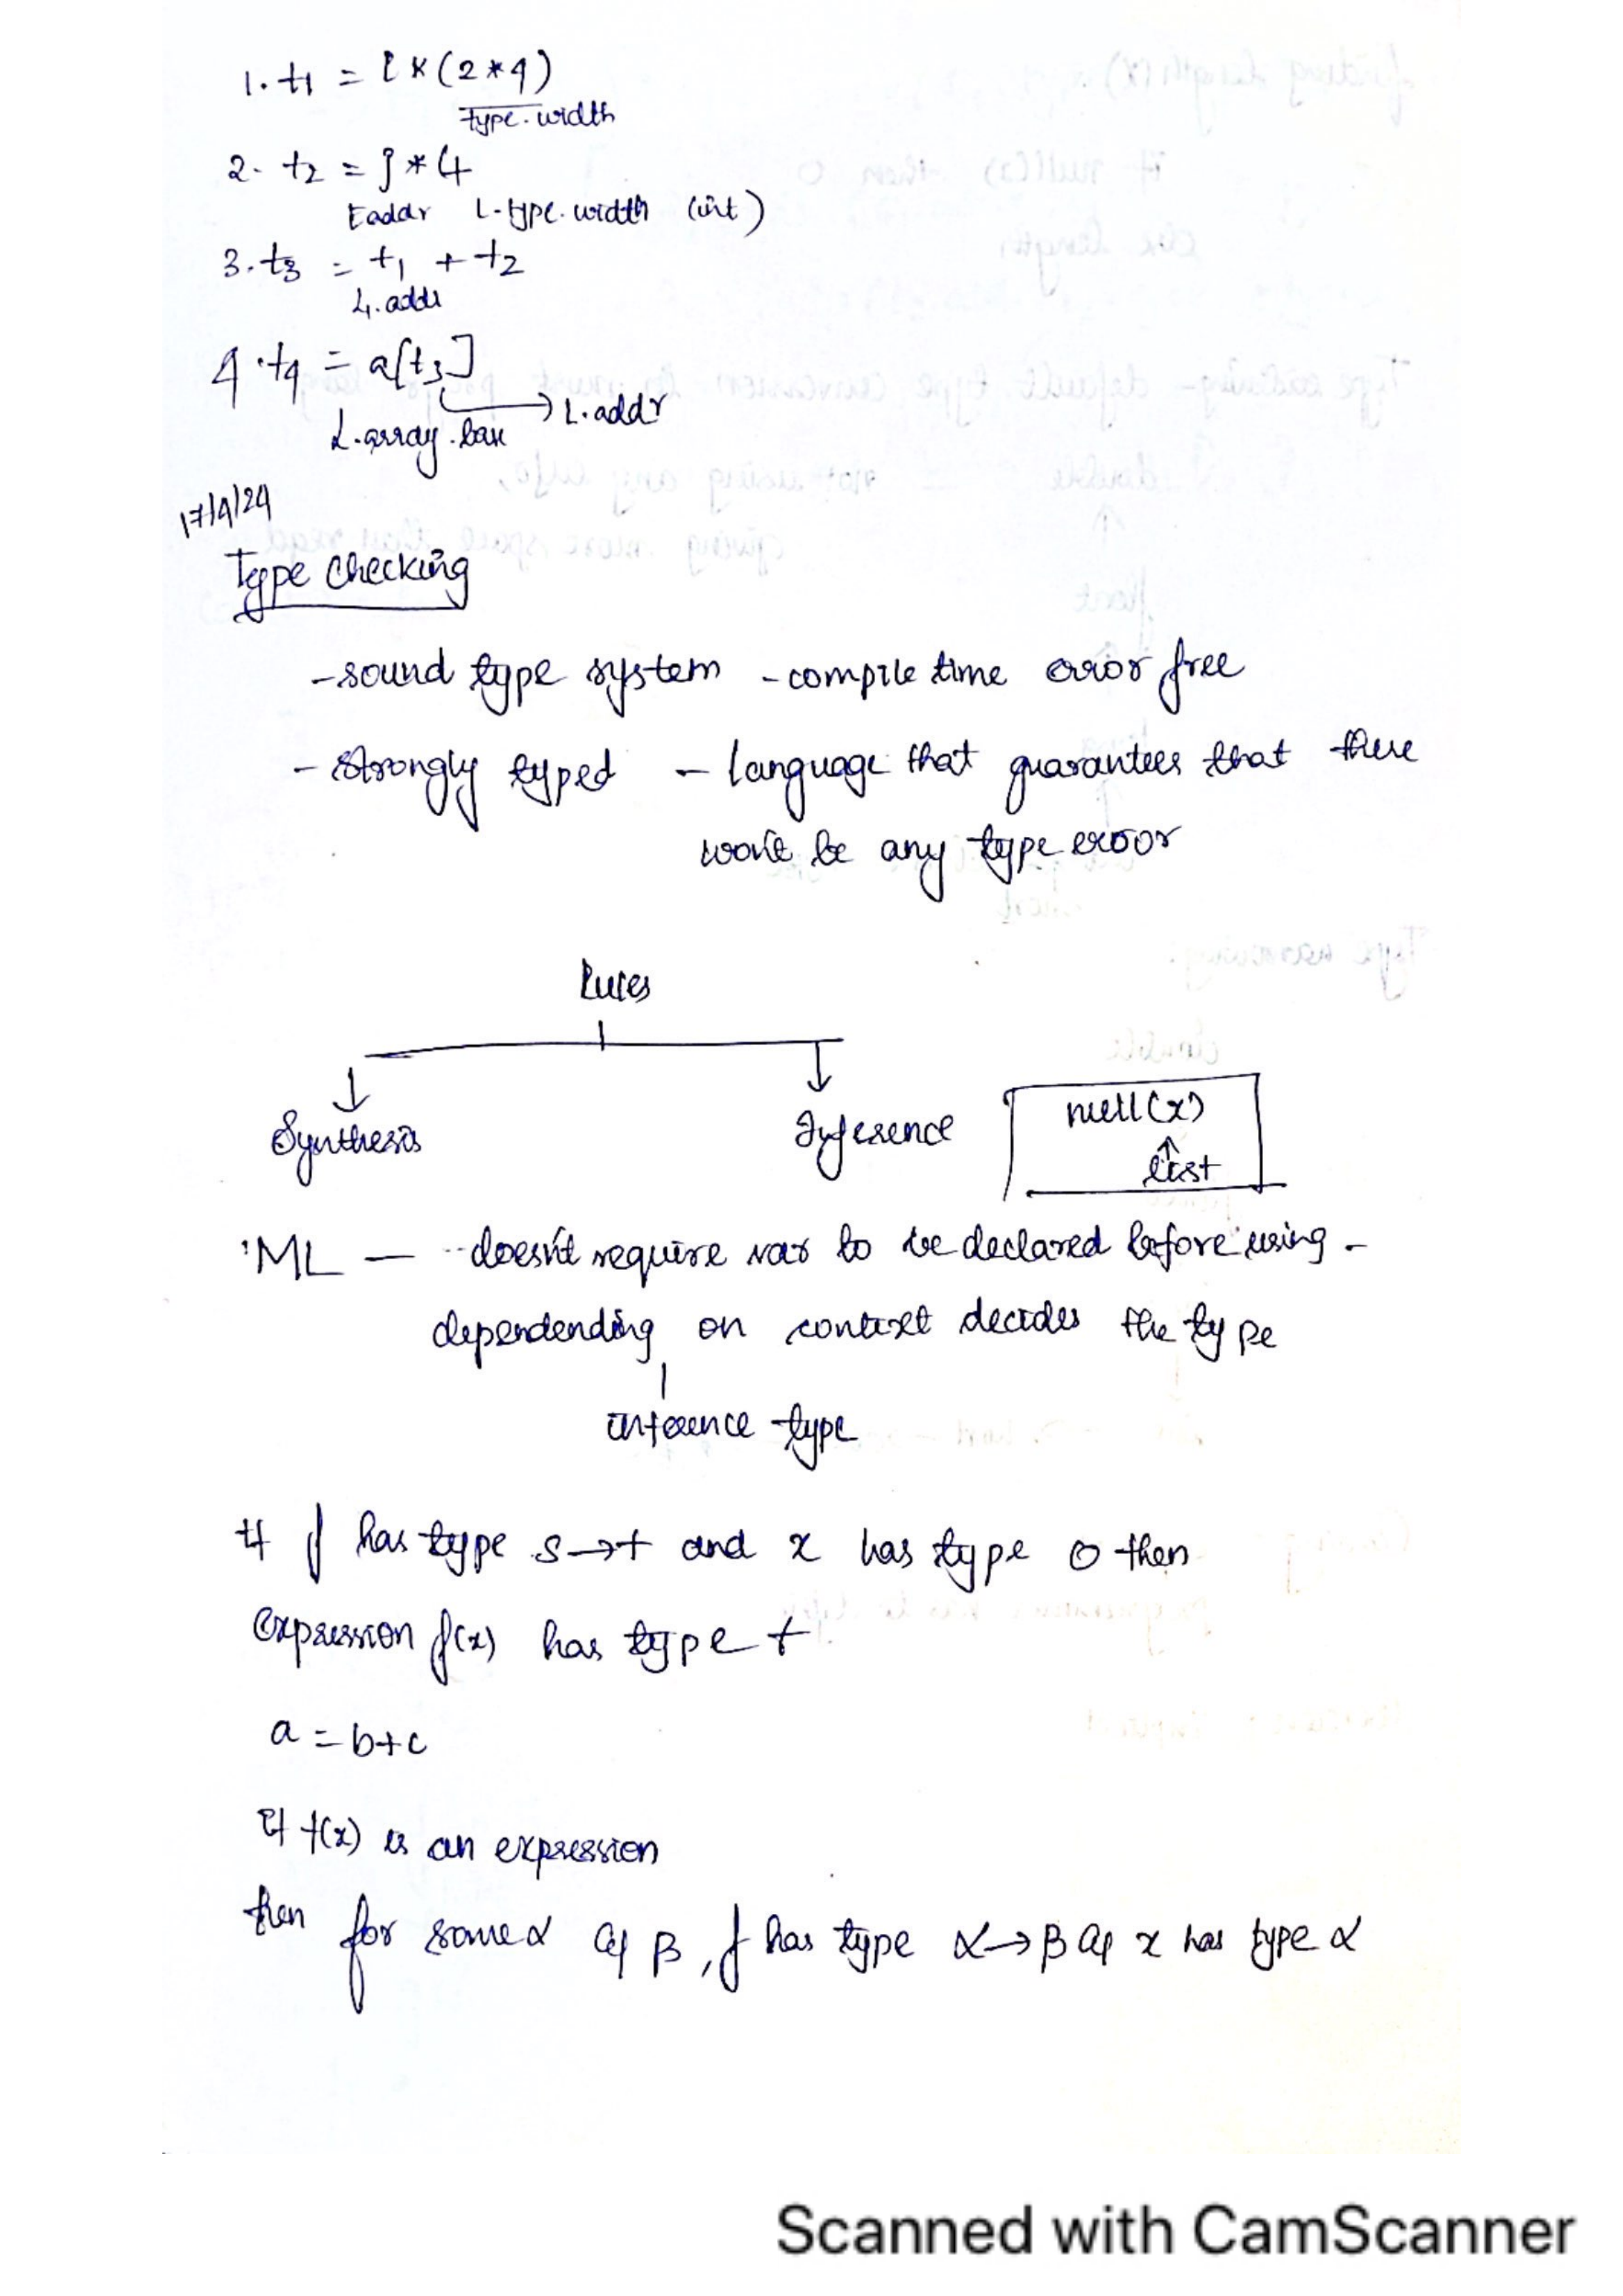 1. t1 = i * (2*4)
type.width
2. t2 = j * 4
E.addr L.type.width (int)
3. t3 = t1 + t2
L.addr
4. t4 = a[t3]
L.array.base → L.addr
17/4/24
Type checking
- sound type system - compile time error free
- strongly typed - language that guarantees that there
won't be any type error
Rules
Synthesis Inference null(x)
↑
list
ML — doesn't require var to be declared before using -
dependending on context decides the type
inference type
If f has type s→t and x has type s then
expression f(x) has type t
a = b+c
If f(x) is an expression
then for some α & β, f has type α→β & x has type α
Scanned with CamScanner